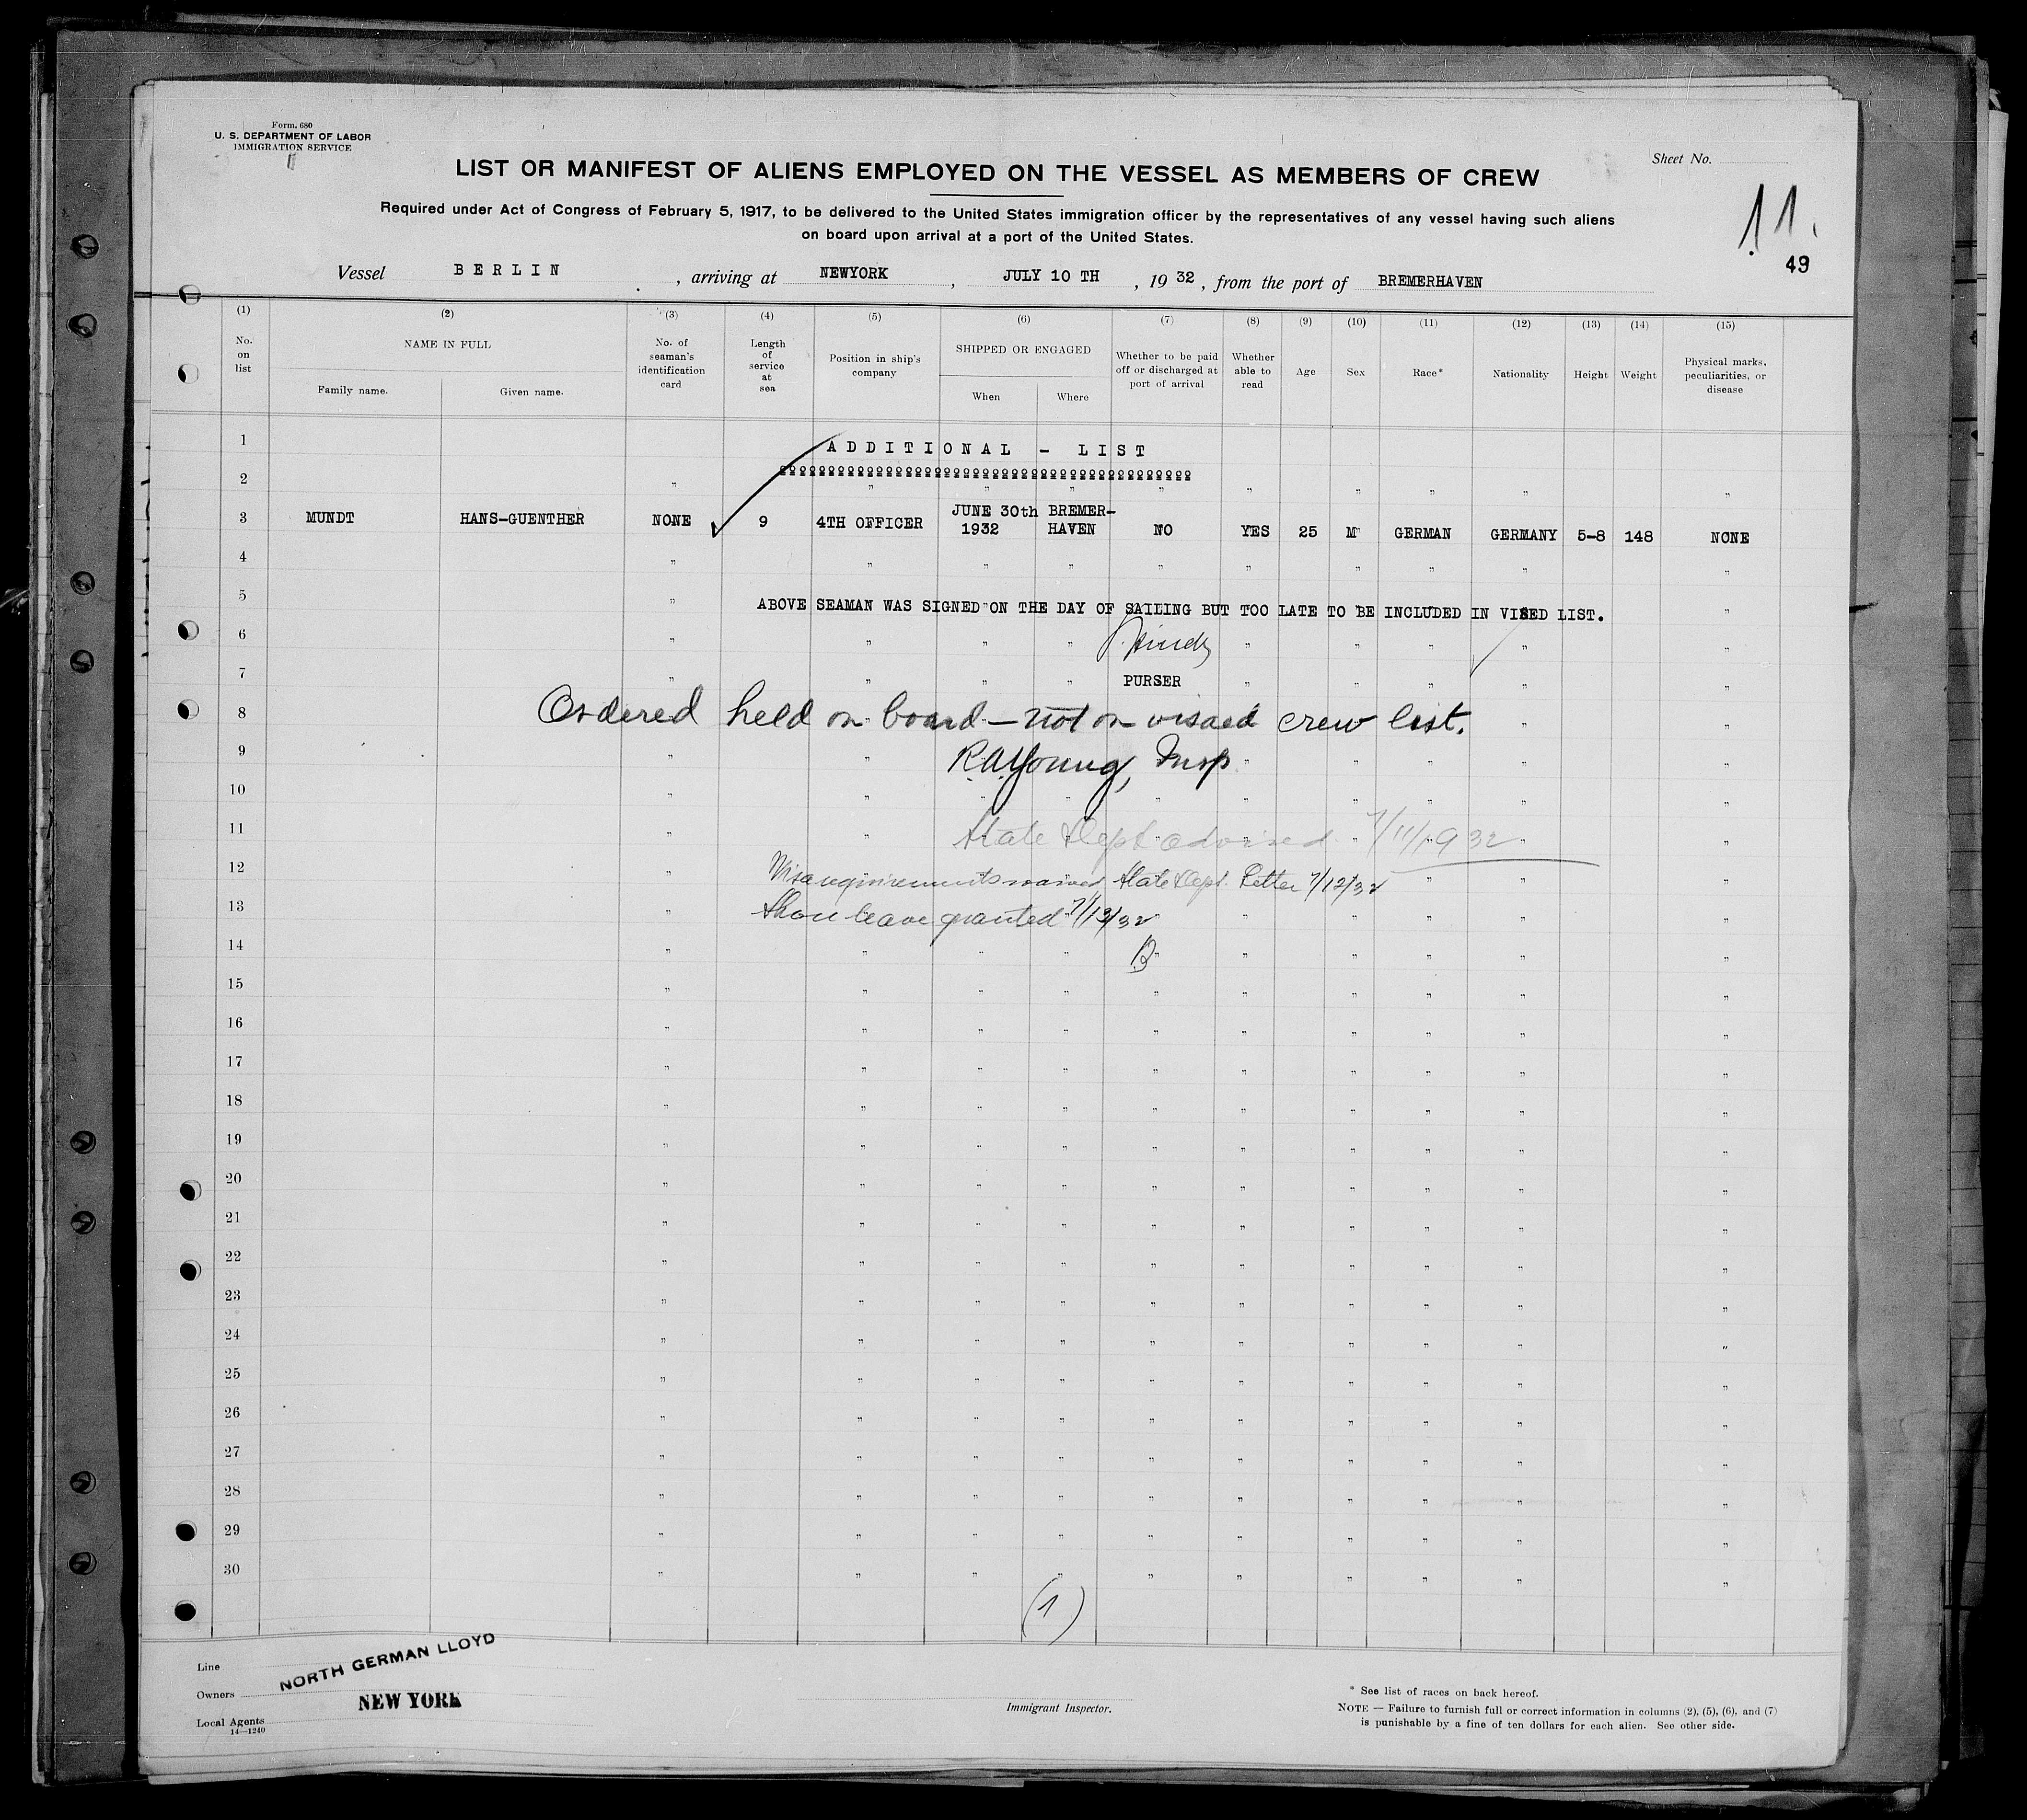 Form. 680
U. S. DEPARTMENT OF LABOR
IMMIGRATION SERVICE
Sheet No.
LIST OR MANIFEST OF ALIENS EMPLOYED ON THE VESSEL AS MEMBERS OF CREW
Required under Act of Congress of February 5, 1917, to be delivered to the United States immigration officer by the representatives of any vessel having such aliens
on board upon arrival at a port of the United States.
11.
49
Vessel BERLIN, arriving at NEWYORK, JULY 10 TH, 1932, from the port of BREMERHAVEN
(1) (2) (3) (4) (5) (6) (7) (8) (9) (10) (11) (12) (13) (14) (15)
No. on list
NAME IN FULL
Family name. Given name.
No. of seaman's identification card
Length of service at sea
Position in ship's company
SHIPPED OR ENGAGED
When Where
Whether to be paid off or discharged at port of arrival
Whether able to read
Age
Sex
Race*
Nationality
Height
Weight
Physical marks, peculiarities, or disease
1 ADDITIONAL - LIST
2 " " " " " " " " " "
3 MUNDT HANS-GUENTHER NONE 9 4TH OFFICER JUNE 30th 1932 BREMER-HAVEN NO YES 25 M GERMAN GERMANY 5-8 148 NONE
4 " " " " " " " " " "
5 " ABOVE SEAMAN WAS SIGNED ON THE DAY OF SAILING BUT TOO LATE TO BE INCLUDED IN VISED LIST. "
6 " " " " " " " " "
7 " " " " PURSER " " " " "
8 Ordered held on board — not on visaed crew list. " "
9 " " R.A. Young, Insp. " " " " "
10 " " " " " " " " " "
11 " " State Dept advised 7/11/1932 " "
12 " Visa requirements waived, State Dept. Letter 7/12/32 " " "
13 " Shore leave granted 7/13/32 " " " " "
14 " " " " B " " " " " "
15 " " " " " " " " " "
16 " " " " " " " " " "
17 " " " " " " " " " "
18 " " " " " " " " " "
19 " " " " " " " " " "
20 " " " " " " " " " "
21 " " " " " " " " " "
22 " " " " " " " " " "
23 " " " " " " " " " "
24 " " " " " " " " " "
25 " " " " " " " " " "
26 " " " " " " " " " "
27 " " " " " " " " " "
28 " " " " " " " " " "
29 " " " " " " " " " "
30 " " " " " " " " " "
(1)
Line NORTH GERMAN LLOYD
Owners NEW YORK
Local Agents
14—1240
Immigrant Inspector.
* See list of races on back hereof.
NOTE — Failure to furnish full or correct information in columns (2), (5), (6), and (7)
is punishable by a fine of ten dollars for each alien. See other side.